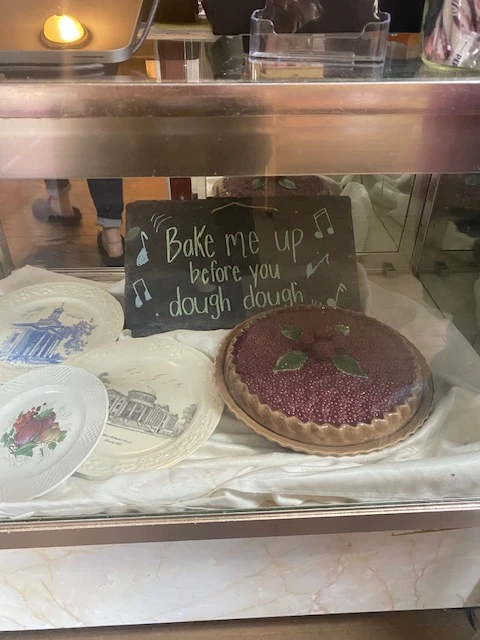 Bake me up
before you
dough dough...